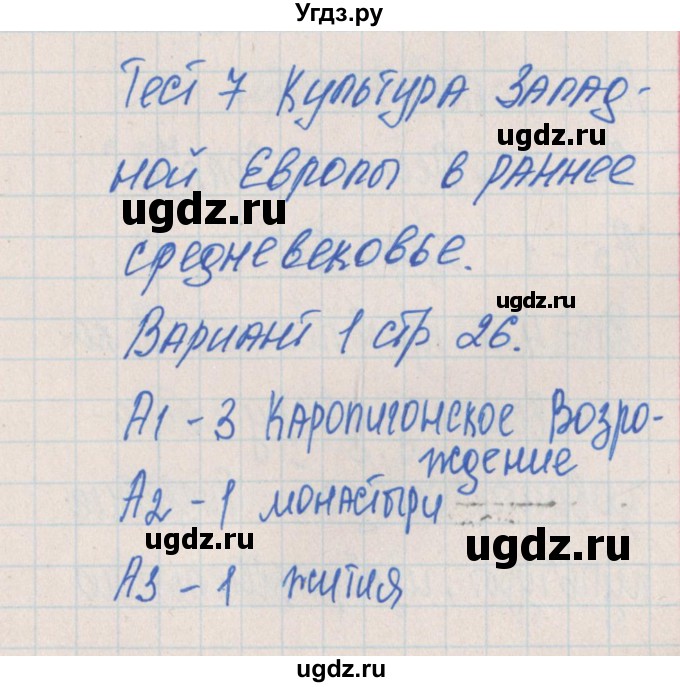 Угдз.ру
Тест 7 Культура Запад-
ugdz.ru
ной Европы в раннее
ugdz.ru
средневековье.
ugdz.ru
Вариант 1 стр 26.
А1 - 3 Каропигонское Возро-
ждение
ugdz.ru
А2 - 1 монастыри
ugdz.ru
ugdz.ru
А3 - 1 жития
ugdz.ru